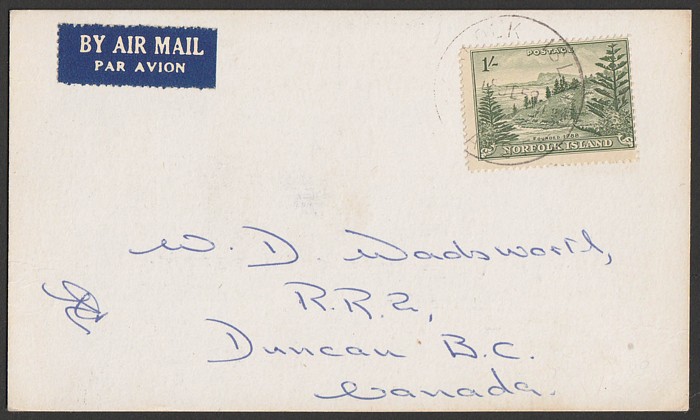 BY AIR MAIL
PAR AVION
POSTAGE
1/-
FOUNDED 1788
NORFOLK ISLAND
W. D. Wadsworth,
R.R.2,
Duncan B.C.
Canada.